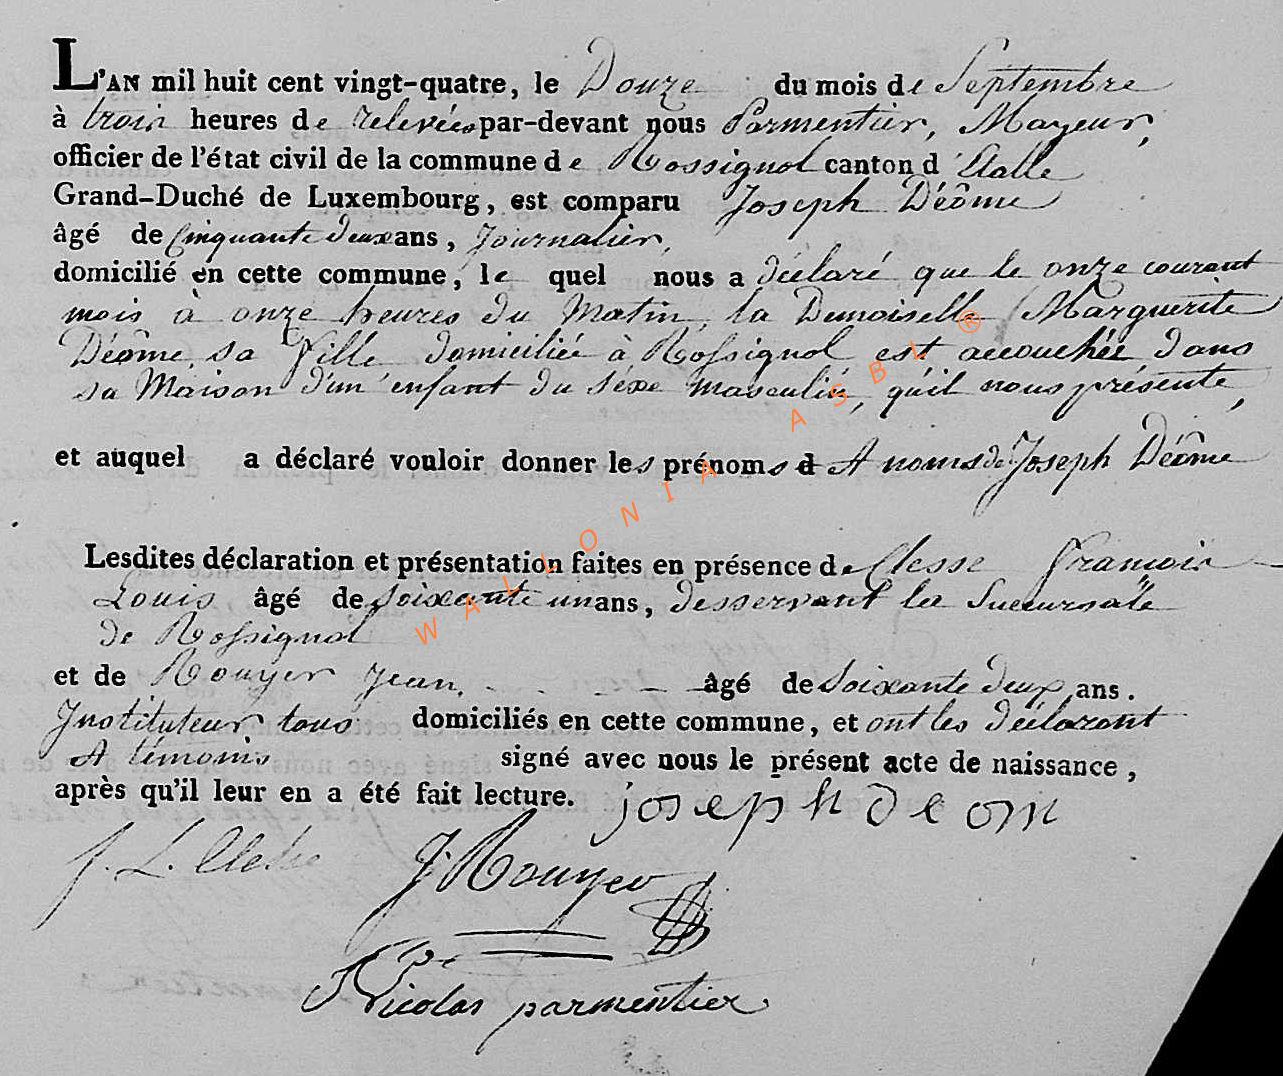 L'AN mil huit cent vingt-quatre, le Douze du mois de Septembre
à trois heures de relevées par-devant nous Parmentier, Mayeur,
officier de l'état civil de la commune de Rossignol canton d'Etalle
Grand-Duché de Luxembourg, est comparu Joseph Déôme
âgé de Cinquante deux ans, Journalier,
domicilié en cette commune, le quel nous a déclaré que le onze courant
mois à onze heures du Matin, la Demoiselle Marguerite
Déôme, sa fille, domiciliée à Rossignol est accouchée dans
sa Maison d'un enfant du séxe masculin, qu'il nous présente,
et auquel a déclaré vouloir donner les prénoms et noms de Joseph Déôme
Lesdites déclaration et présentation faites en présence de Clesse François
Louis âgé de soixante un ans, desservant la Succursale
de Rossignol
et de Rouyer Jean, âgé de soixante deux ans.
Instituteur tous domiciliés en cette commune, et ont les déclarant
et témoins signé avec nous le présent acte de naissance,
après qu'il leur en a été fait lecture. joseph deom
f. L. Clesse J. Rouyer
Nicolas parmentier
WALLONIA ASBL ®